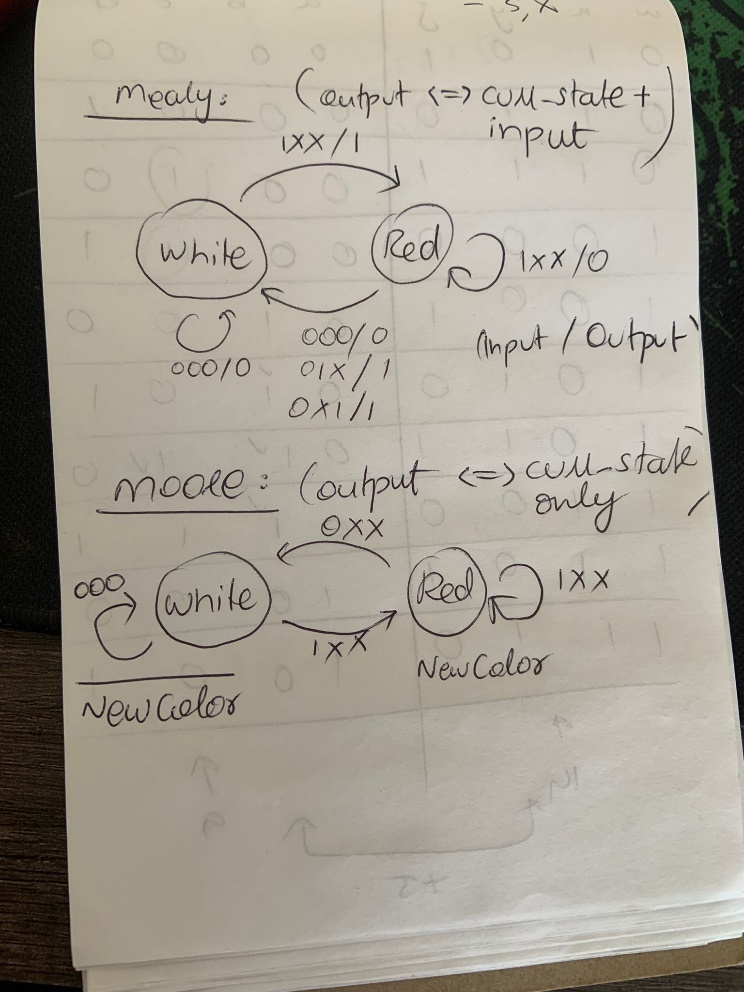 - s, x
Mealy: (output <=> curr-state +
input)
1XX/1
White Red 1XX/0
000/0 000/0 (Input / Output)
01X/1
0X1/1
Moore: (output <=> curr-state
only)
0XX
000 White Red 1XX
1XX
New Color New Color